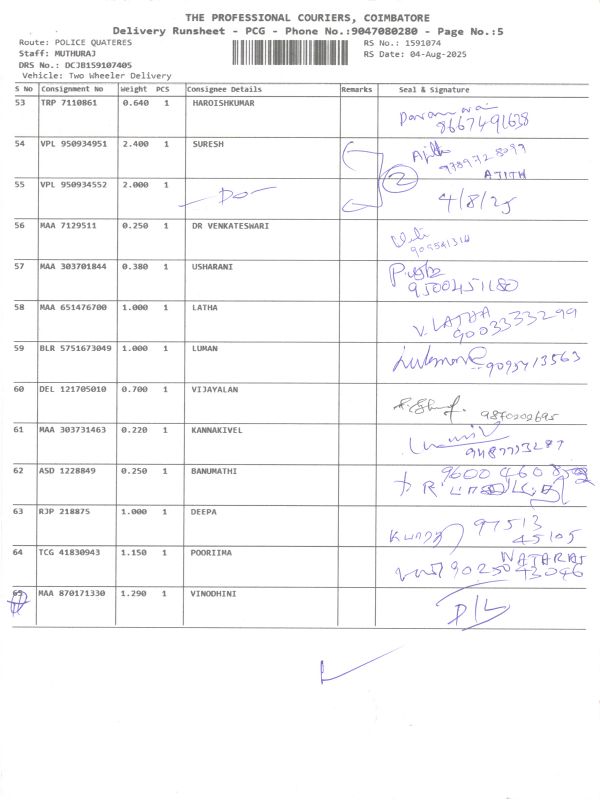 THE PROFESSIONAL COURIERS, COIMBATORE
Delivery Runsheet - PCG - Phone No.:9047080280 - Page No.:5
Route: POLICE QUATERES RS No.: 1591074
Staff: MUTHURAJ RS Date: 04-Aug-2025
DRS No.: DCJB159107405
Vehicle: Two Wheeler Delivery
S No Consignment No Weight PCS Consignee Details Remarks Seal & Signature
53 TRP 7110861 0.640 1 HAROISHKUMAR
8667491638
54 VPL 950934951 2.400 1 SURESH Ajith
9789728099
AJITH
55 VPL 950934552 2.000 1 -Do- 2 4/8/25
56 MAA 7129511 0.250 1 DR VENKATESWARI
57 MAA 303701844 0.380 1 USHARANI
9500451180
58 MAA 651476700 1.000 1 LATHA V. LATHA
9003333299
59 BLR 5751673049 1.000 1 LUMAN
9095713563
60 DEL 121705010 0.700 1 VIJAYALAN
9870202695
61 MAA 303731463 0.220 1 KANNAKIVEL
62 ASD 1228849 0.250 1 BANUMATHI
63 RJP 218875 1.000 1 DEEPA 97513
45105
64 TCG 41830943 1.150 1 POORIIMA NATARAJ
9025043046
65 MAA 870171330 1.290 1 VINODHINI D/L